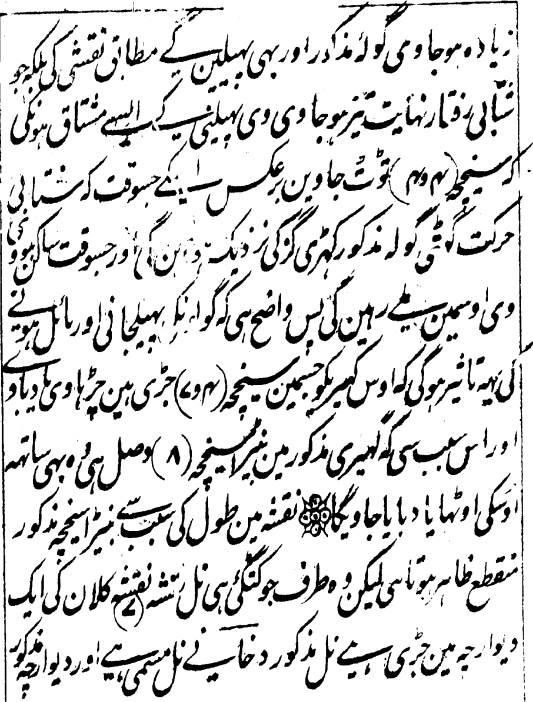 زیاده هوجاوی گولۂ مذکور اور بھی پھیلین گے مطابق نقشی کی بلکہ جو
شتابی رفتار نہایت تیز هوجاوی وی پھیلینگے ایسے مشتاق هونگی
کہ سیخچہ (۴و۴) ٹوٹ جاوین برعکس اسکے جسوقت کہ شتابی
حرکت گھٹی گولہ مذکور کھڑی گز کی نزدیک اور جسوقت ساکن هووی
وی اوسمین ملے رهین گی پس واضح هی کہ گولونکی پھیلجانی اور مائل هونے
کی یہہ تاثیر هوگی کہ اوس گھیریکو جسمین سیخچہ (۴و۷) جڑی هین چڑھاوی یا دباوے
اور اس سبب سی کہ گھیری مذکور مین سیخچہ (۸) وصل هی وہ بھی ساتھہ
اوسکی اوٹھایا دبایا جاویگا نقشہ مین طول کی سبب سے سیخچہ مذکور
منقطع ظاهر هوتا هی لیکن وہ طرف جو نقشہ کلان کی ایک
دیوارچہ مین جڑی هے نل مذکور دخانے نل مسمی هے اور دیوارچہ مذکور